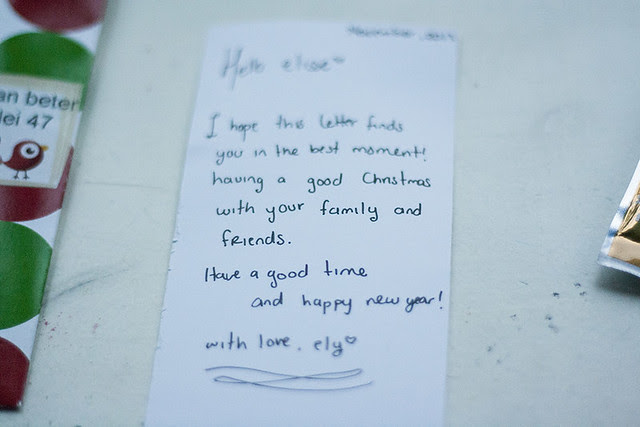 an beter
lei 47
Hello elisse♡
I hope this letter finds
you in the best moment!
having a good Christmas
with your family and
friends.
Have a good time
and happy new year!
with love, ely♡